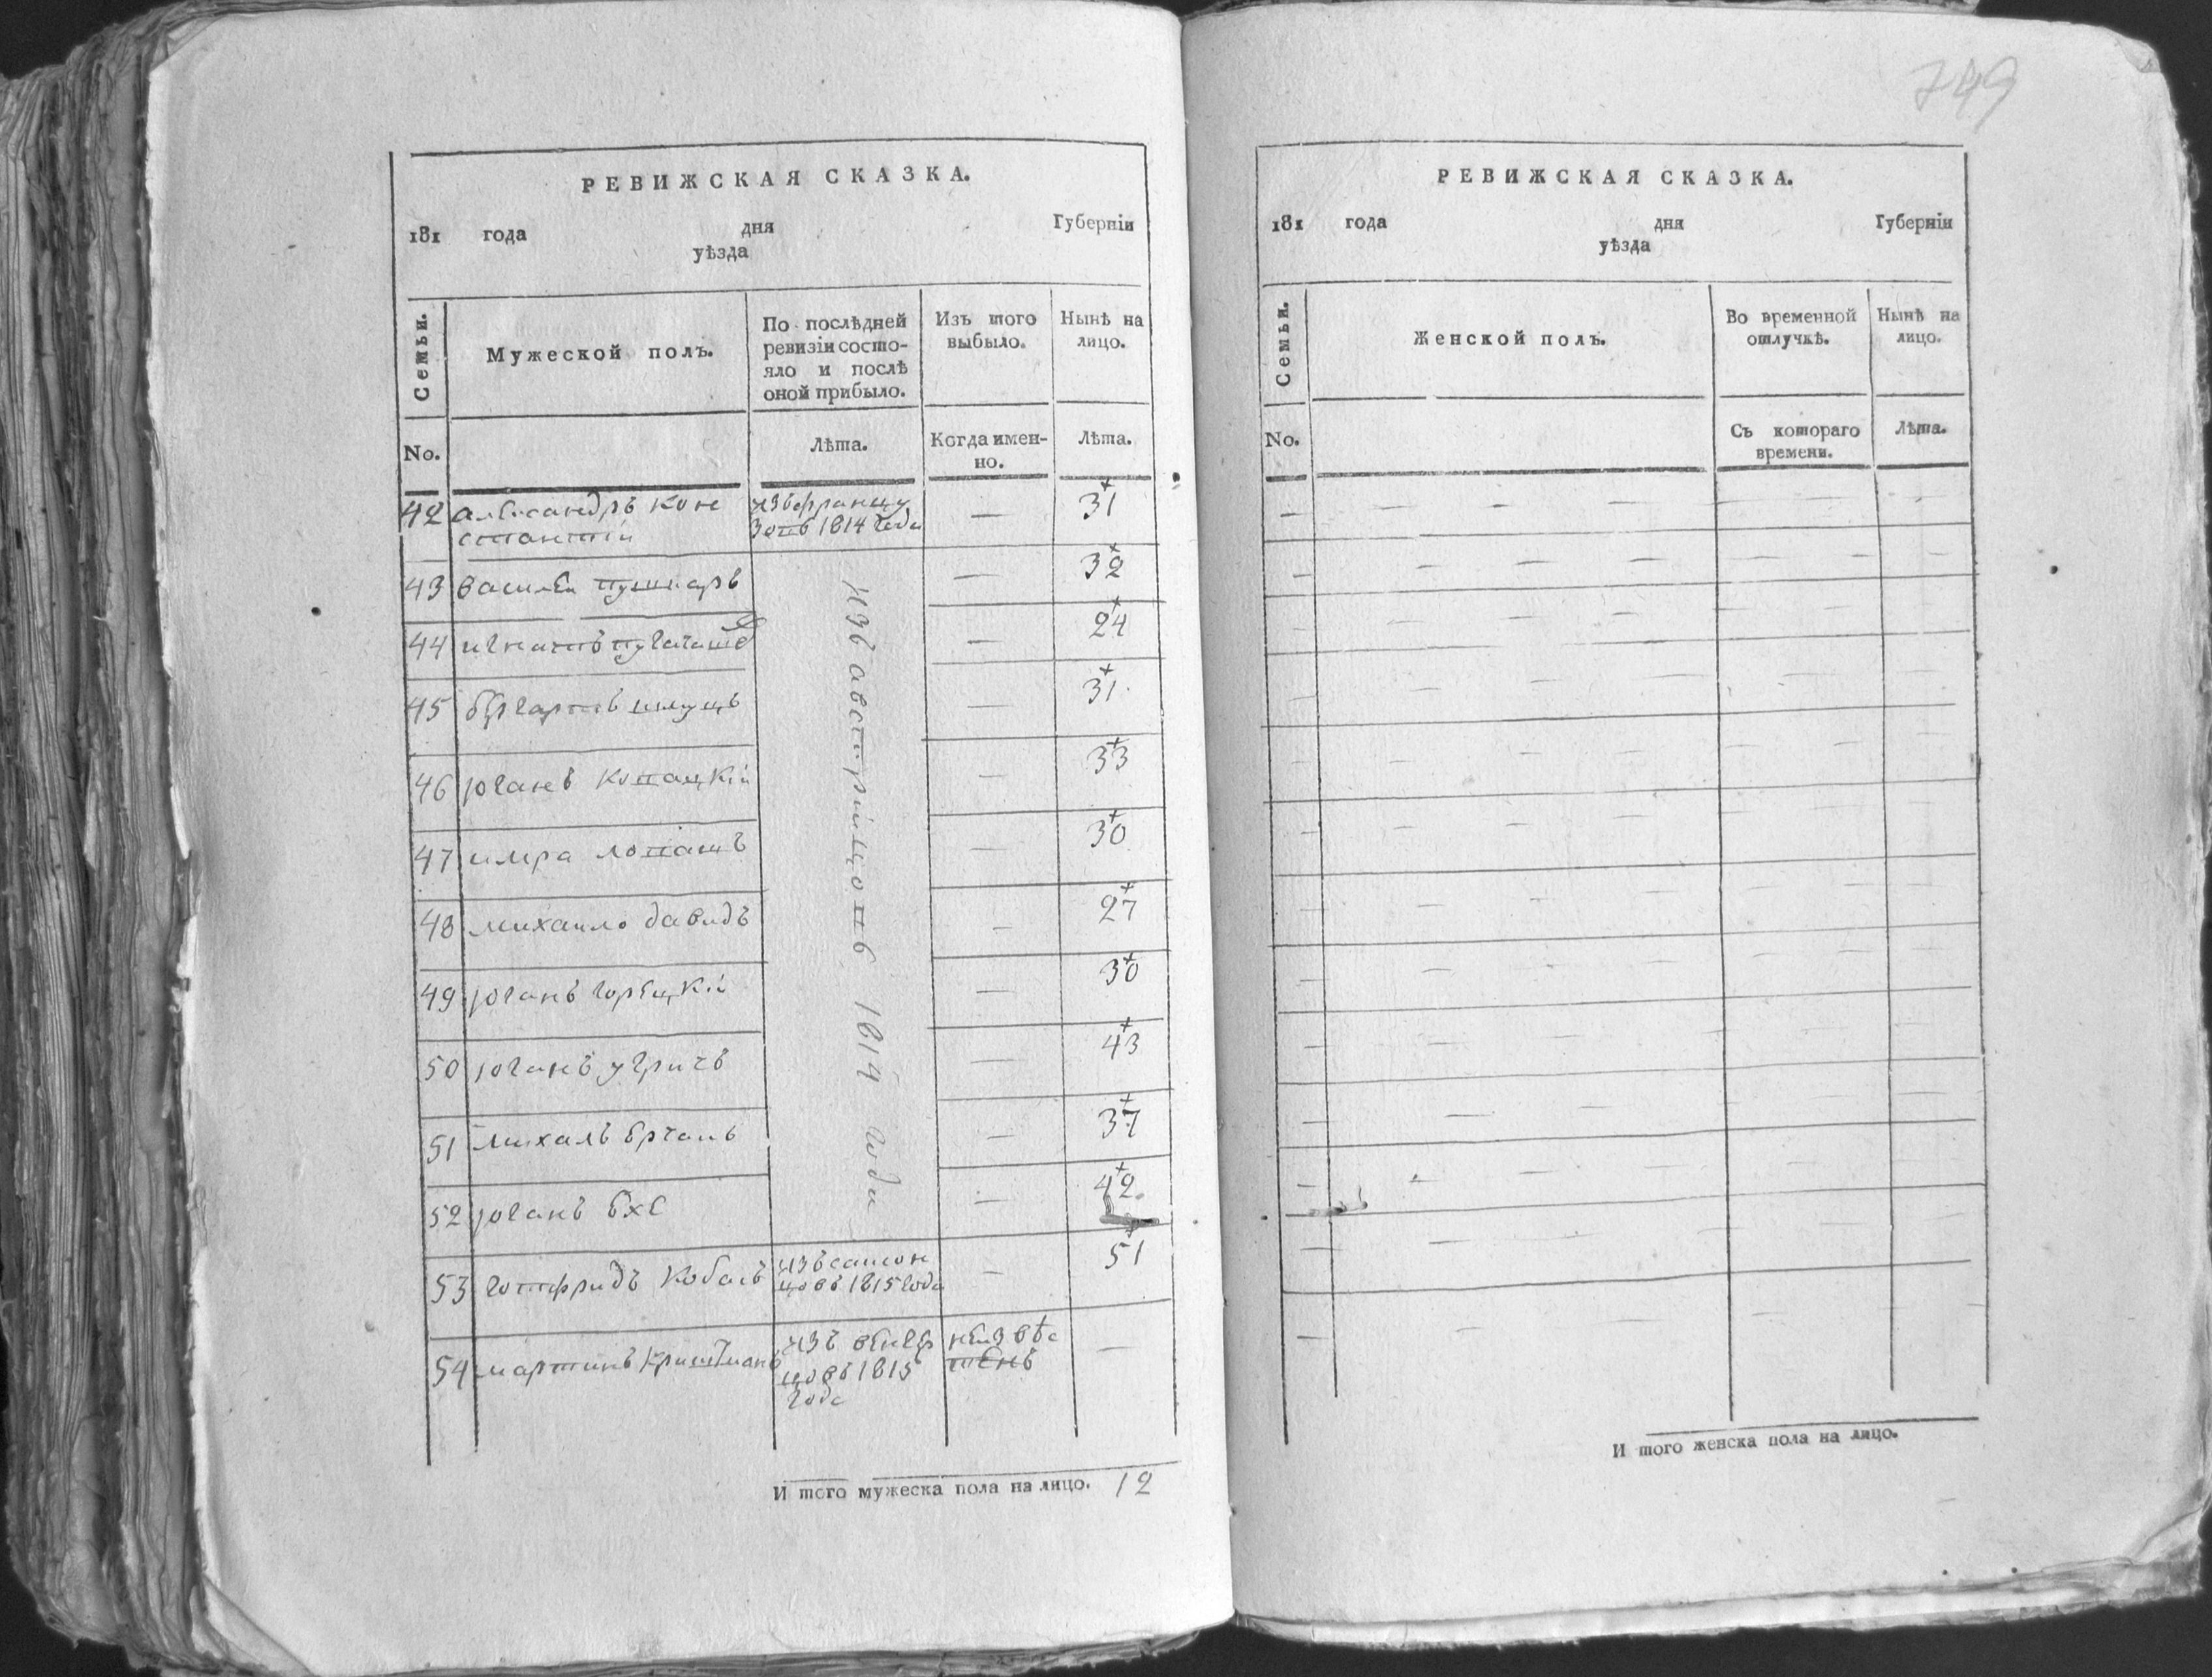 749
РЕВИЖСКАЯ СКАЗКА.
181 года дня Губерніи
уѣзда
Семьи. Мужеской полъ. По послѣдней ревизіи состояло и послѣ оной прибыло. Изъ того выбыло. Нынѣ на лицо.
No. Лѣта. Когда именно. Лѣта.
42 александръ кон
стантій
изъ францу
зовъ 1814 года
— 31
43 василей пушкаръ — 32
44 игнатъ — 24
45 — 31
46 юганъ копацкій — 33
47 имра лопатъ — 30
48 михаило давидъ — 27
49 юганъ горецкій — 30
50 юганъ угричъ — 43
51 михалъ — 37
52 юганъ — 42
изъ австрійцовъ 1814 года
53 готфридъ кобасъ
изъ саксон
цовъ 1815 года
— 51
54 мартинъ
изъ венгер
цовъ 1815
года
неизвѣс
тенъ
—
И того мужеска пола на лицо. 12
РЕВИЖСКАЯ СКАЗКА.
181 года дня Губерніи
уѣзда
Семьи. Женской полъ. Во временной отлучкѣ. Нынѣ на лицо.
No. Съ котораго времени. Лѣта.
И того женска пола на лицо.